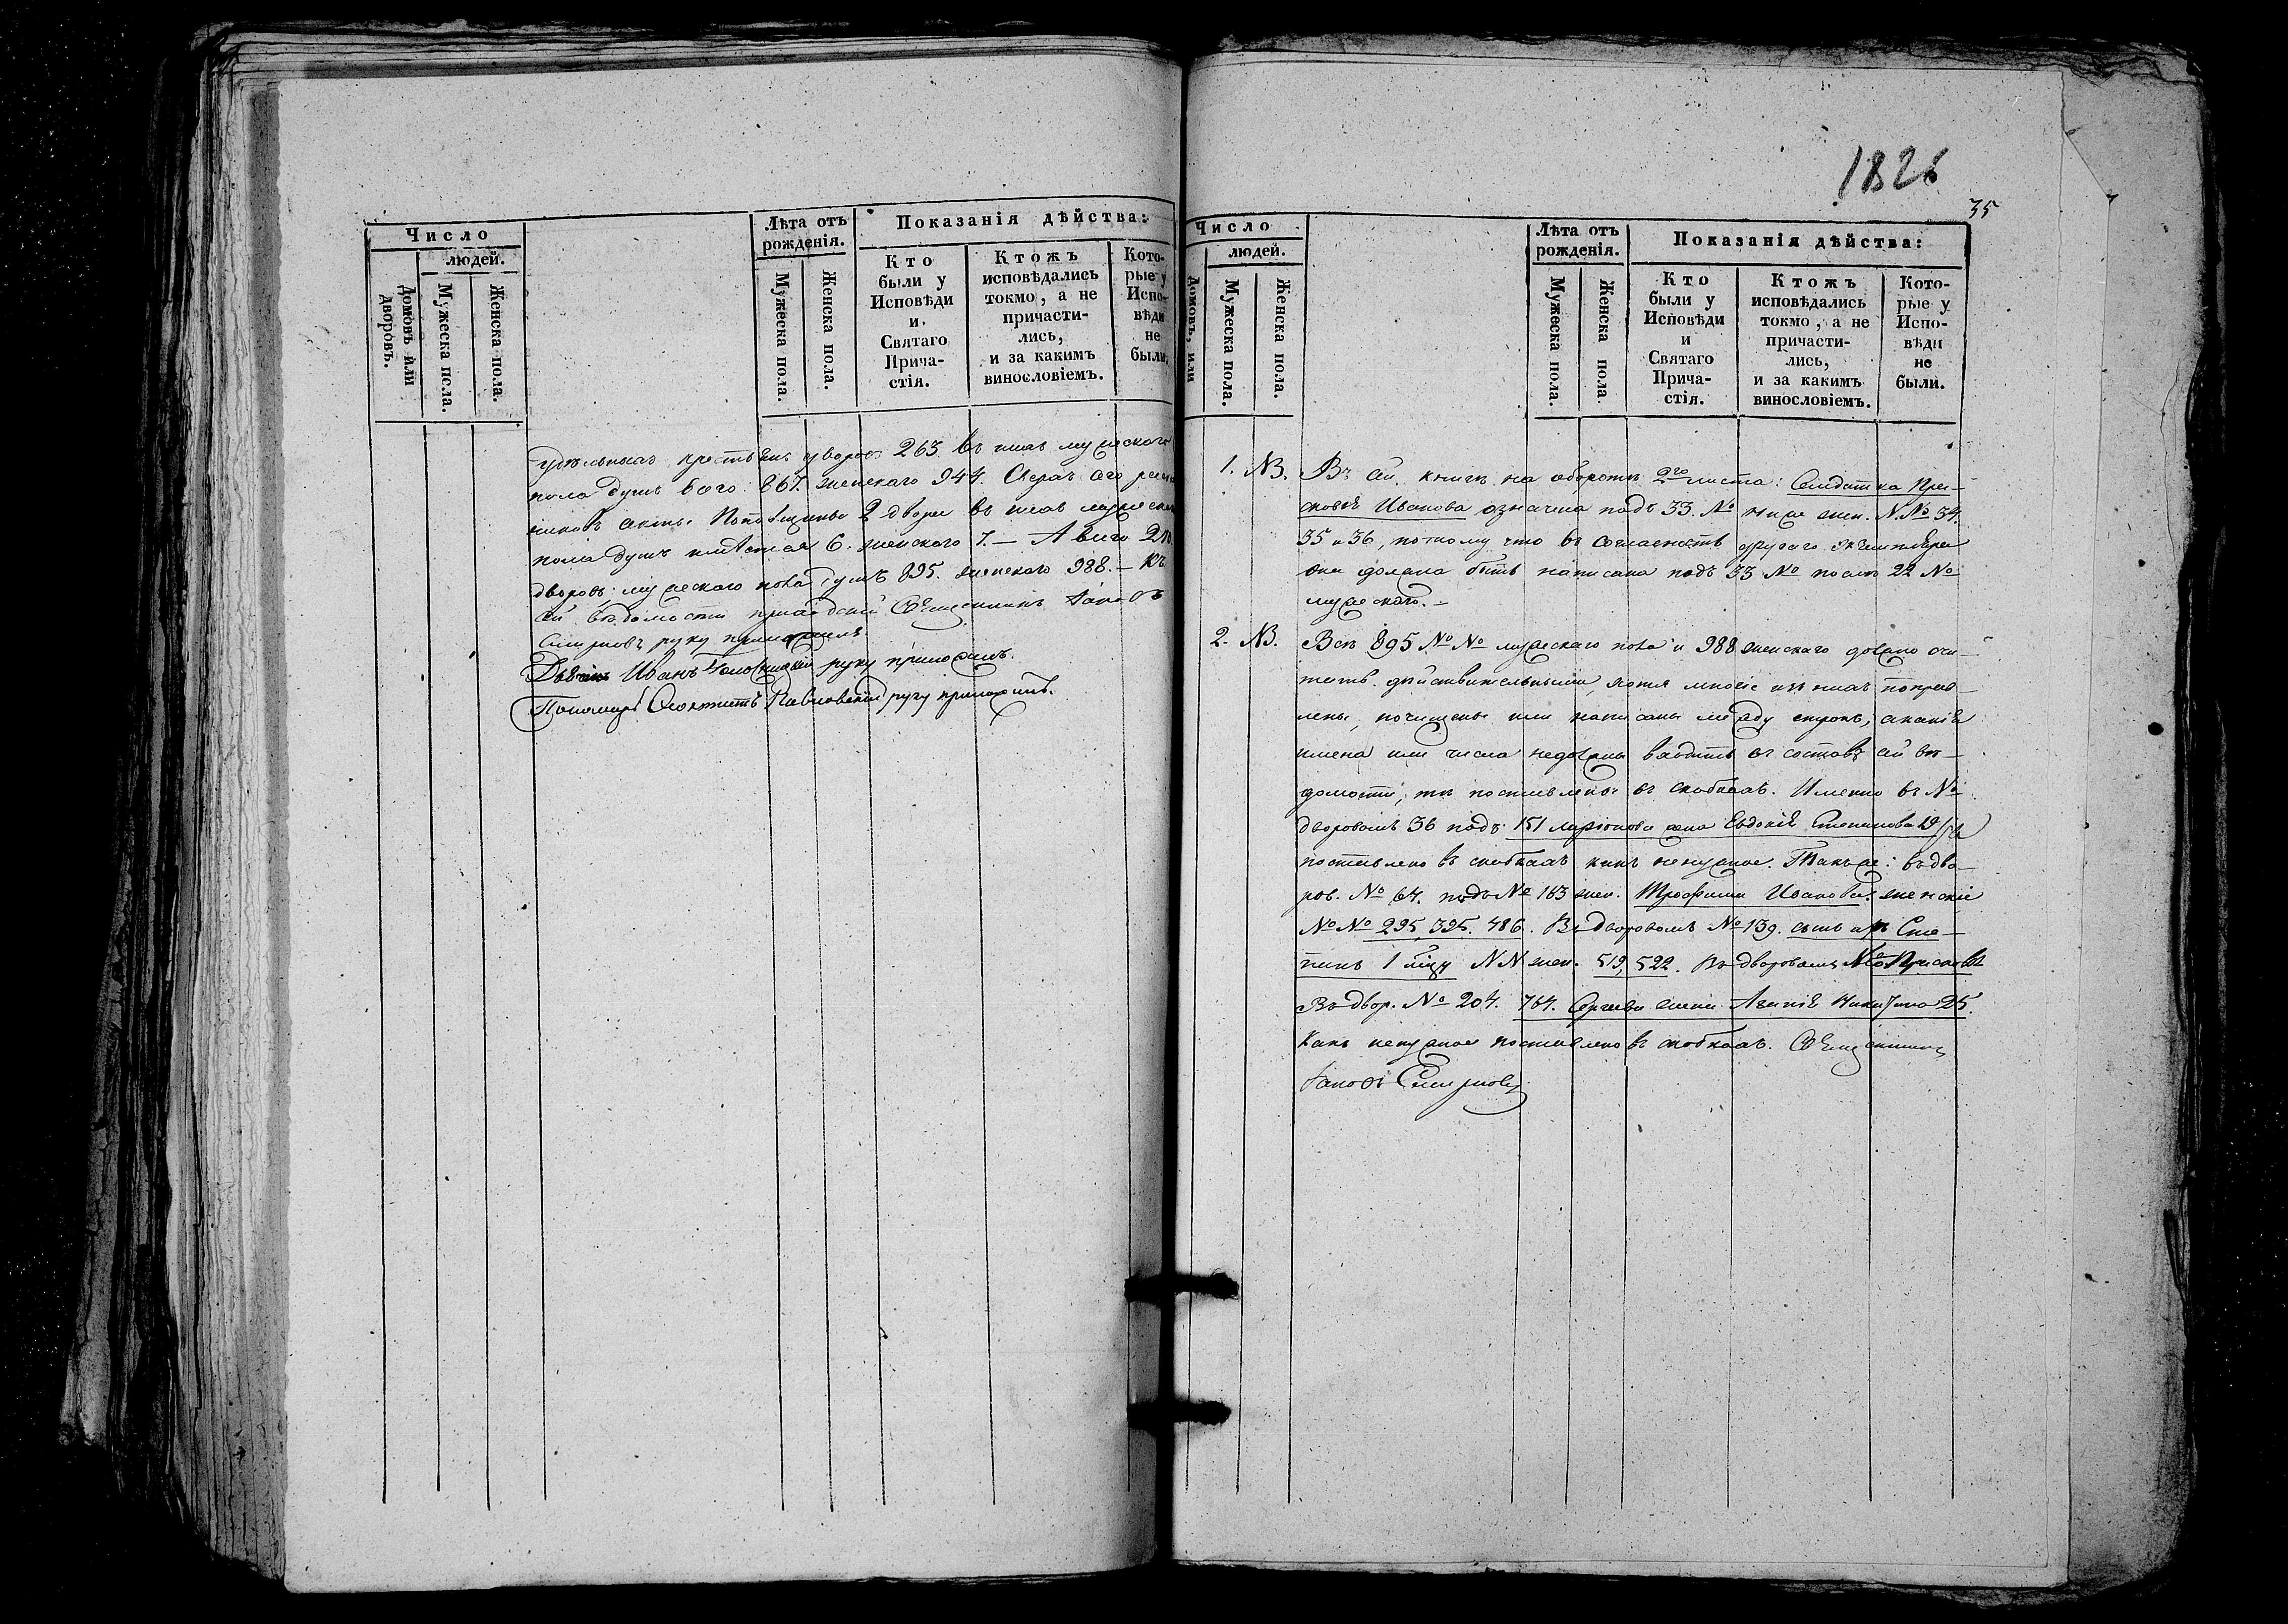 Число
людей.
Домовъ или дворовъ.
Мужеска пола.
Женска пола.
Лѣта отъ рожденія.
Мужеска пола.
Женска пола.
Показанія дѣйства:
Кто
были у
Исповѣди
и
Святаго
Прича-
стія.
Ктожъ
исповѣдались
токмо, а не
причасти-
лись,
и за какимъ
винословіемъ.
Кото-
рые у
Испо-
вѣди
не
были.
Удѣльныхъ крестьянъ дворовъ 263. въ нихъ мужескаго
пола душъ 867. женскаго 944.
2 двора въ нихъ мужеска
пола душъ имѣется 6. женскаго 7. — А всего
дворовъ; мужескаго пола душъ 895. женскаго 988. — Къ
сей вѣдомости приходскій Священникъ Іаковъ
Смирновъ руку приложилъ
Дьячекъ Иванъ руку приложилъ.
Пономарь Павловскій руку приложилъ.
1826
35
Число
людей.
Домовъ, или
Мужеска пола.
Женска пола.
Лѣта отъ
рожденія.
Мужеска пола.
Женска пола.
Показанія дѣйства:
Кто
были у
Исповѣди
и
Святаго
Прича-
стія.
Ктожъ
исповѣдались
токмо, а не
причасти-
лись,
и за какимъ
винословіемъ.
Кото-
рые у
Испо-
вѣди
не
были.
1. NB. Въ сей книгѣ на оборотѣ 2го листа: Солдатка Прас-
ковья Иванова означена подъ 33. № ниже жен. N.№ 34.
35 и 36, потому что въ согласность другаго экземпляра
она должна быть написана подъ 33 № послѣ 22 №
мужескаго. —
2. NB. Всѣ 895 №№ мужескаго пола и 988 женскаго должно счи-
тать дѣйствительными, хотя многіе изъ нихъ поправ-
лены, почищены или написаны между строкъ, а какія
имена или числа недолжны входить въ составъ сей вѣ-
домости, тѣ поставлены въ скобкахъ. Именно въ №
дворовомъ 36 подъ 151 Ларіонова жена Евдокія Степанова 19
поставлено въ скобкахъ какъ ненужное. Также: въ дво-
ров. № 64. подъ № 183 жен. Трофима Иванова. женскіе
№№ 295, 395. 486. Въ дворовомъ № 139. сынъ Сте-
панъ 1 NN жен. 519, 522. Въ дворовомъ
Въ двор. № 204. 764. Сергѣева жена 25.
Какъ ненужное поставлено въ скобкахъ. Священникъ
Іаковъ Смирновъ